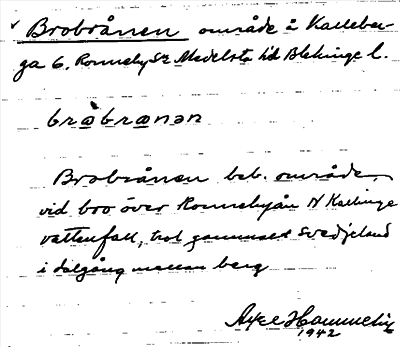 ✓ Brobrånen område å Kalleber-
ga 6. Ronneby sn Medelsta hd Blekinge l.
bròbrånən
Brobrånen beb. område
vid bro över Ronnebyån N Kallinge
vattenfall, trol. gammalt svedjeland
i dalgång mellan berg
Axel Hammelin
1942